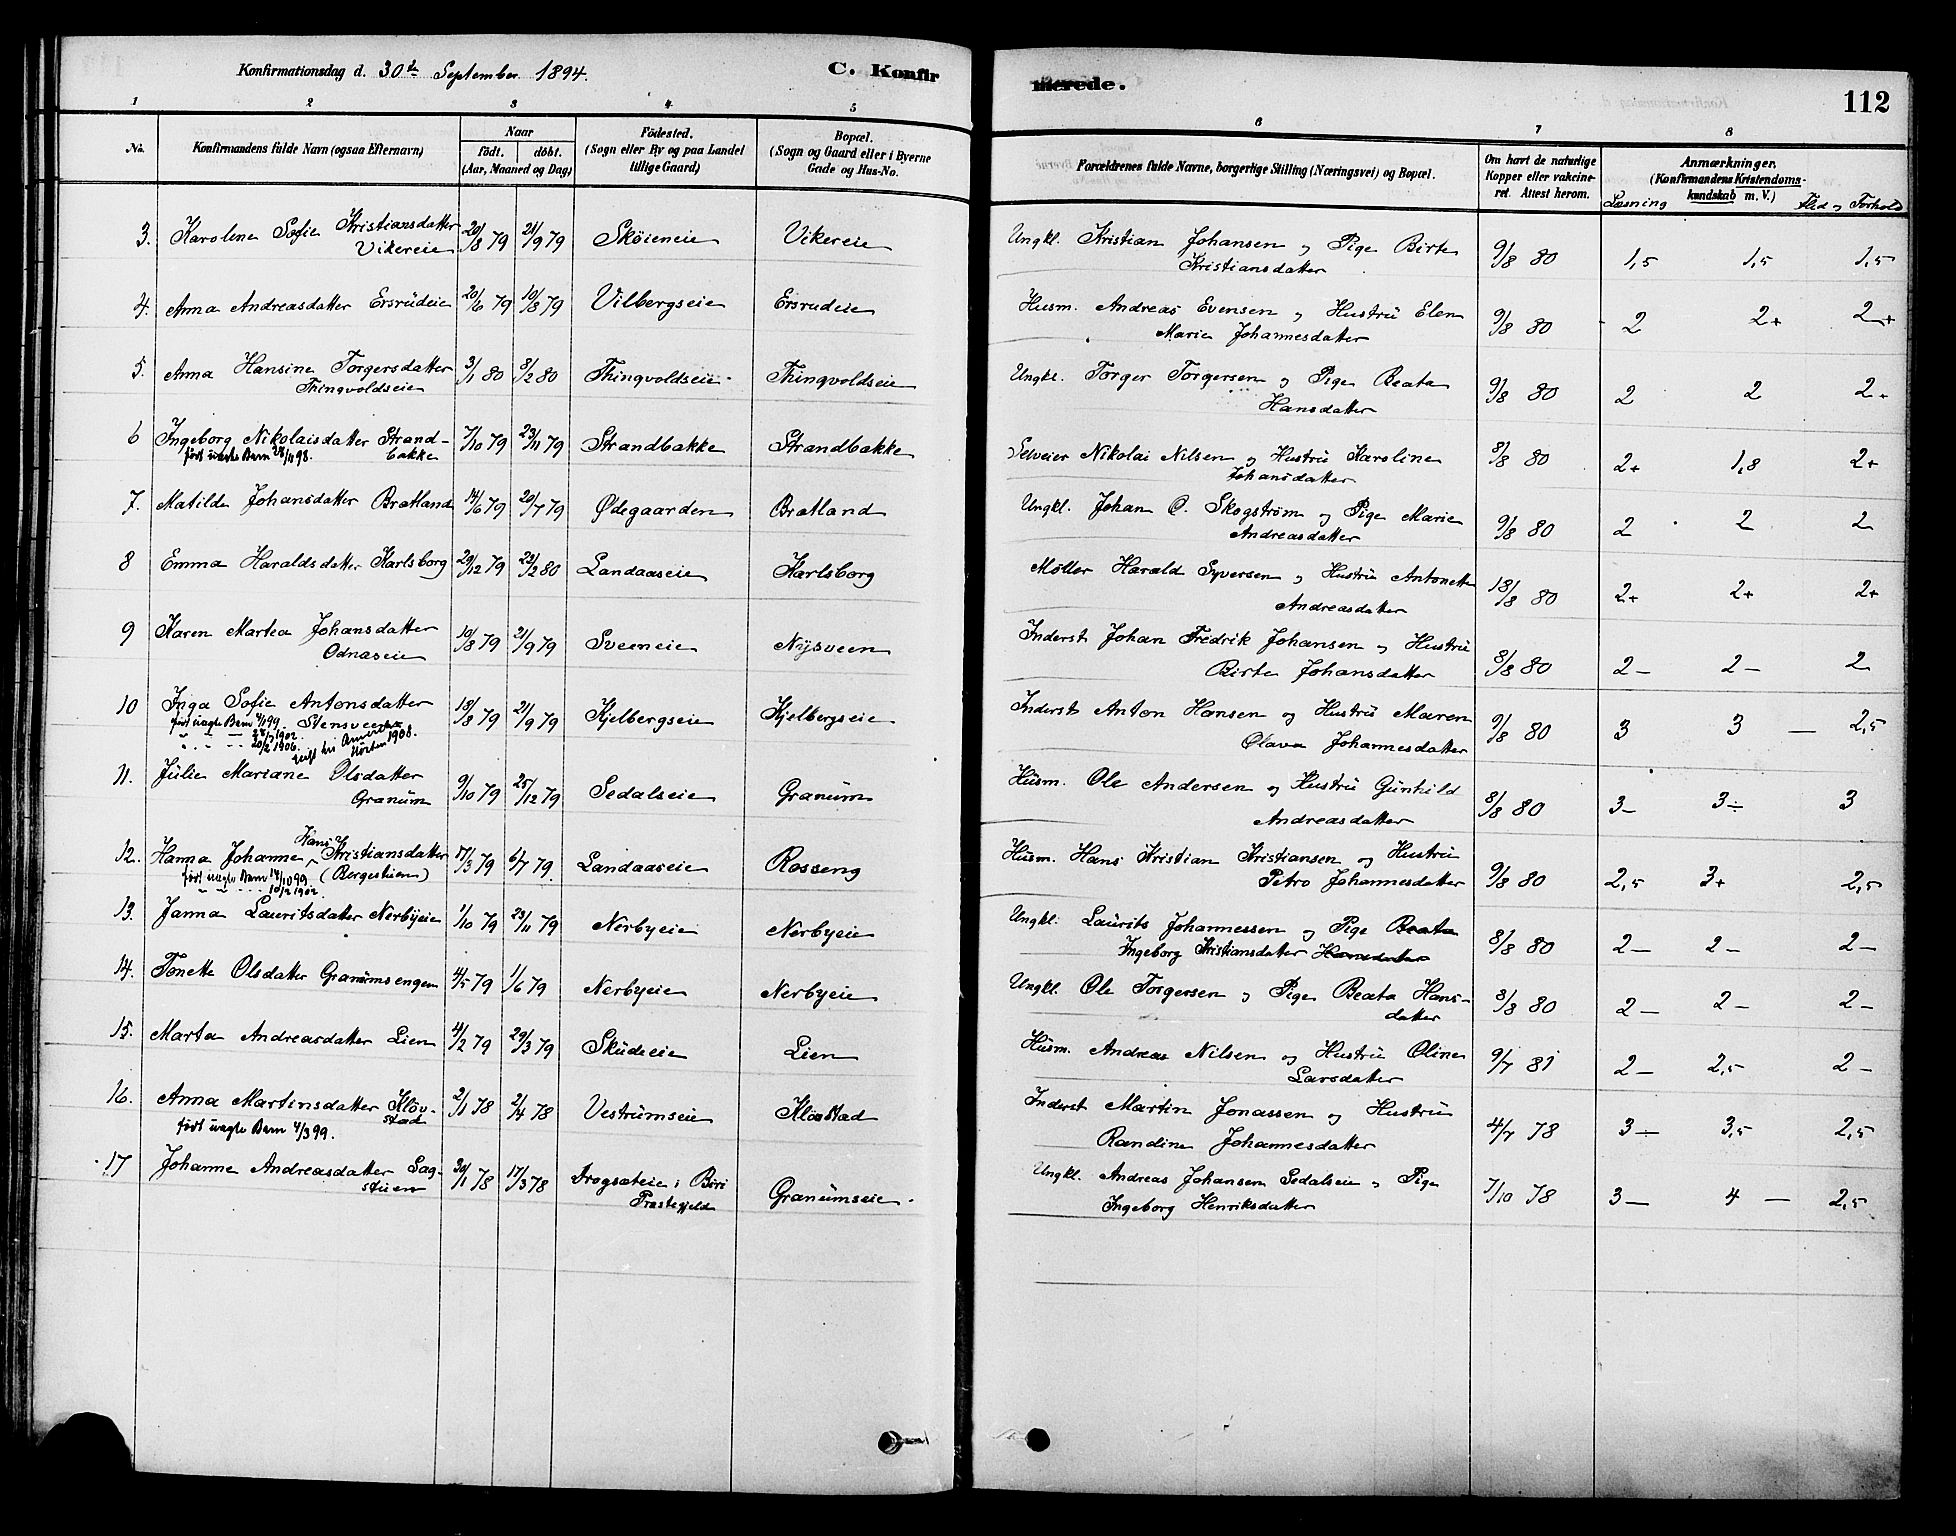 Konfirmationsdag d. 30te September 1894.
C. Konfirmerede.
112
1 2 3 4 5 6 7 8
No.
Konfirmandens fulde Navn (ogsaa Efternavn)
Naar
födt. döbt.
(Aar, Maaned og Dag)
Födested.
(Sogn eller By og paa Landet
tillige Gaard)
Bopæl.
(Sogn og Gaard eller i Byerne
Gade og Hus-No.
Forældrenes fulde Navne, borgerlige Stilling (Næringsvei) og Bopæl.
Om havt de naturlige
Kopper eller vakcine-
ret. Attest herom.
Anmærkninger.
(Konfirmandens Kristendoms-
kundskab m. V.)
Læsning Flid og Forhold
3. Karoline Sofie Kristiansdatter 20/8 79 21/9 79 Sköieneie Vikereie Ungkl. Kristian Johansen og Pige Birte 9/8 80 1,5 1,5 1,5
Vikereie Kristiansdatter
4. Anna Andreasdatter Ersrudeie 20/6 79 10/8 79 Vilbergseie Ersrudeie Husm. Andreas Evensen og Hustru Elen 9/8 80 2 2+ 2+
Marie Johannesdatter
5. Anna Hansine Torgersdatter 3/1 80 8/2 80 Thingvoldseie Thingvoldseie Ungkl. Torger Torgersen og Pige Beata 9/8 80 2 2 2+
Thingvoldseie Hansdatter
6 Ingeborg Nikolaisdatter Strand- 7/10 79 23/11 79 Strandbakke Strandbakke Selveier Nikolai Nilsen og Hustru Karoline 8/8 80 2+ 1,8 2+
bakke Johansdatter
födt uægte Barn 28/11 98.
7. Matilde Johansdatter Bratland 14/6 79 20/7 79 Ødegaarden Bratland Ungkl. Johan O. Skogström og Pige Marie 9/8 80 2 2 2
Andreasdatter
8 Emma Haraldsdatter Karlsborg 29/12 79 22/2 80 Landaaseie Karlsborg Møller Harald Syversen og Hustru Antonette 18/8 80 2+ 2+ 2+
Andreasdatter
9 Karen Martea Johansdatter 10/8 79 21/9 79 Sveeneie Nysveen Inderst Johan Fredrik Johansen og Hustru 8/8 80 2- 2- 2
Odnaseie Birte Johansdatter
10 Inga Sofie Antonsdatter 18/8 79 21/9 79 Kjelbergseie Kjelbergseie Inderst Anton Hansen og Hustru Maren 9/8 80 3 3 — 2,5
Stensveen Olava Johannesdatter
födt uægte Barn 4/1 99.
1902.
20/2 1906.
Horten 1908.
11. Julie Mariane Olsdatter 9/10 79 25/12 79 Sedalseie Granum Husm. Ole Andersen og Hustru Gunhild 8/8 80 3- 3÷ 3
Granum Andreasdatter
12. Hanna Johanne Hans Kristiansdatter 17/3 79 6/7 79 Landaaseie Rosseng Husm. Hans Kristian Kristiansen og Hustru 9/8 80 2,5 3+ 2,5
(Bergestuen) Petro Johannesdatter
födt uægte Barn 14/10 99
" " " " 10/2 1902
13. Janna Lauritsdatter Nerbyeie 1/10 79 23/11 79 Nerbyeie Nerbyeie Ungkl. Laurits Johannessen og Pige Beata 8/8 80 2- 2- 2-
Ingeborg Kristiansdatter Hansdatter
14. Tonette Olsdatter Granumsengen 4/5 79 1/6 79 Nerbyeie Nerbyeie Ungkl. Ole Torgersen og Pige Beata Hans- 8/8 80 2- 2- 2-
datter
15. Marta Andreasdatter Lien 4/2 79 29/3 79 Skudeeie Lien Husm. Andreas Nilsen og Hustru Oline 9/7 81 2- 2,5 2-
Larsdatter
16. Anna Martinsdatter Klöv- 2/1 78 2/4 78 Vestrumseie Klöstad Inderst Martin Jonassen og Hustru 4/7 78 3- 3,5 2,5
stad Randine Johannesdatter
födt uægte Barn 4/3 99.
17 Johanne Andreasdatter Sag- 30/1 78 17/3 78 Drogsæteie i Biri Granumseie. Ungkl. Andreas Johansen Sedalseie og Pige 7/10 78 3- 4 — 2,5
stuen Præstegjeld Ingeborg Henriksdatter